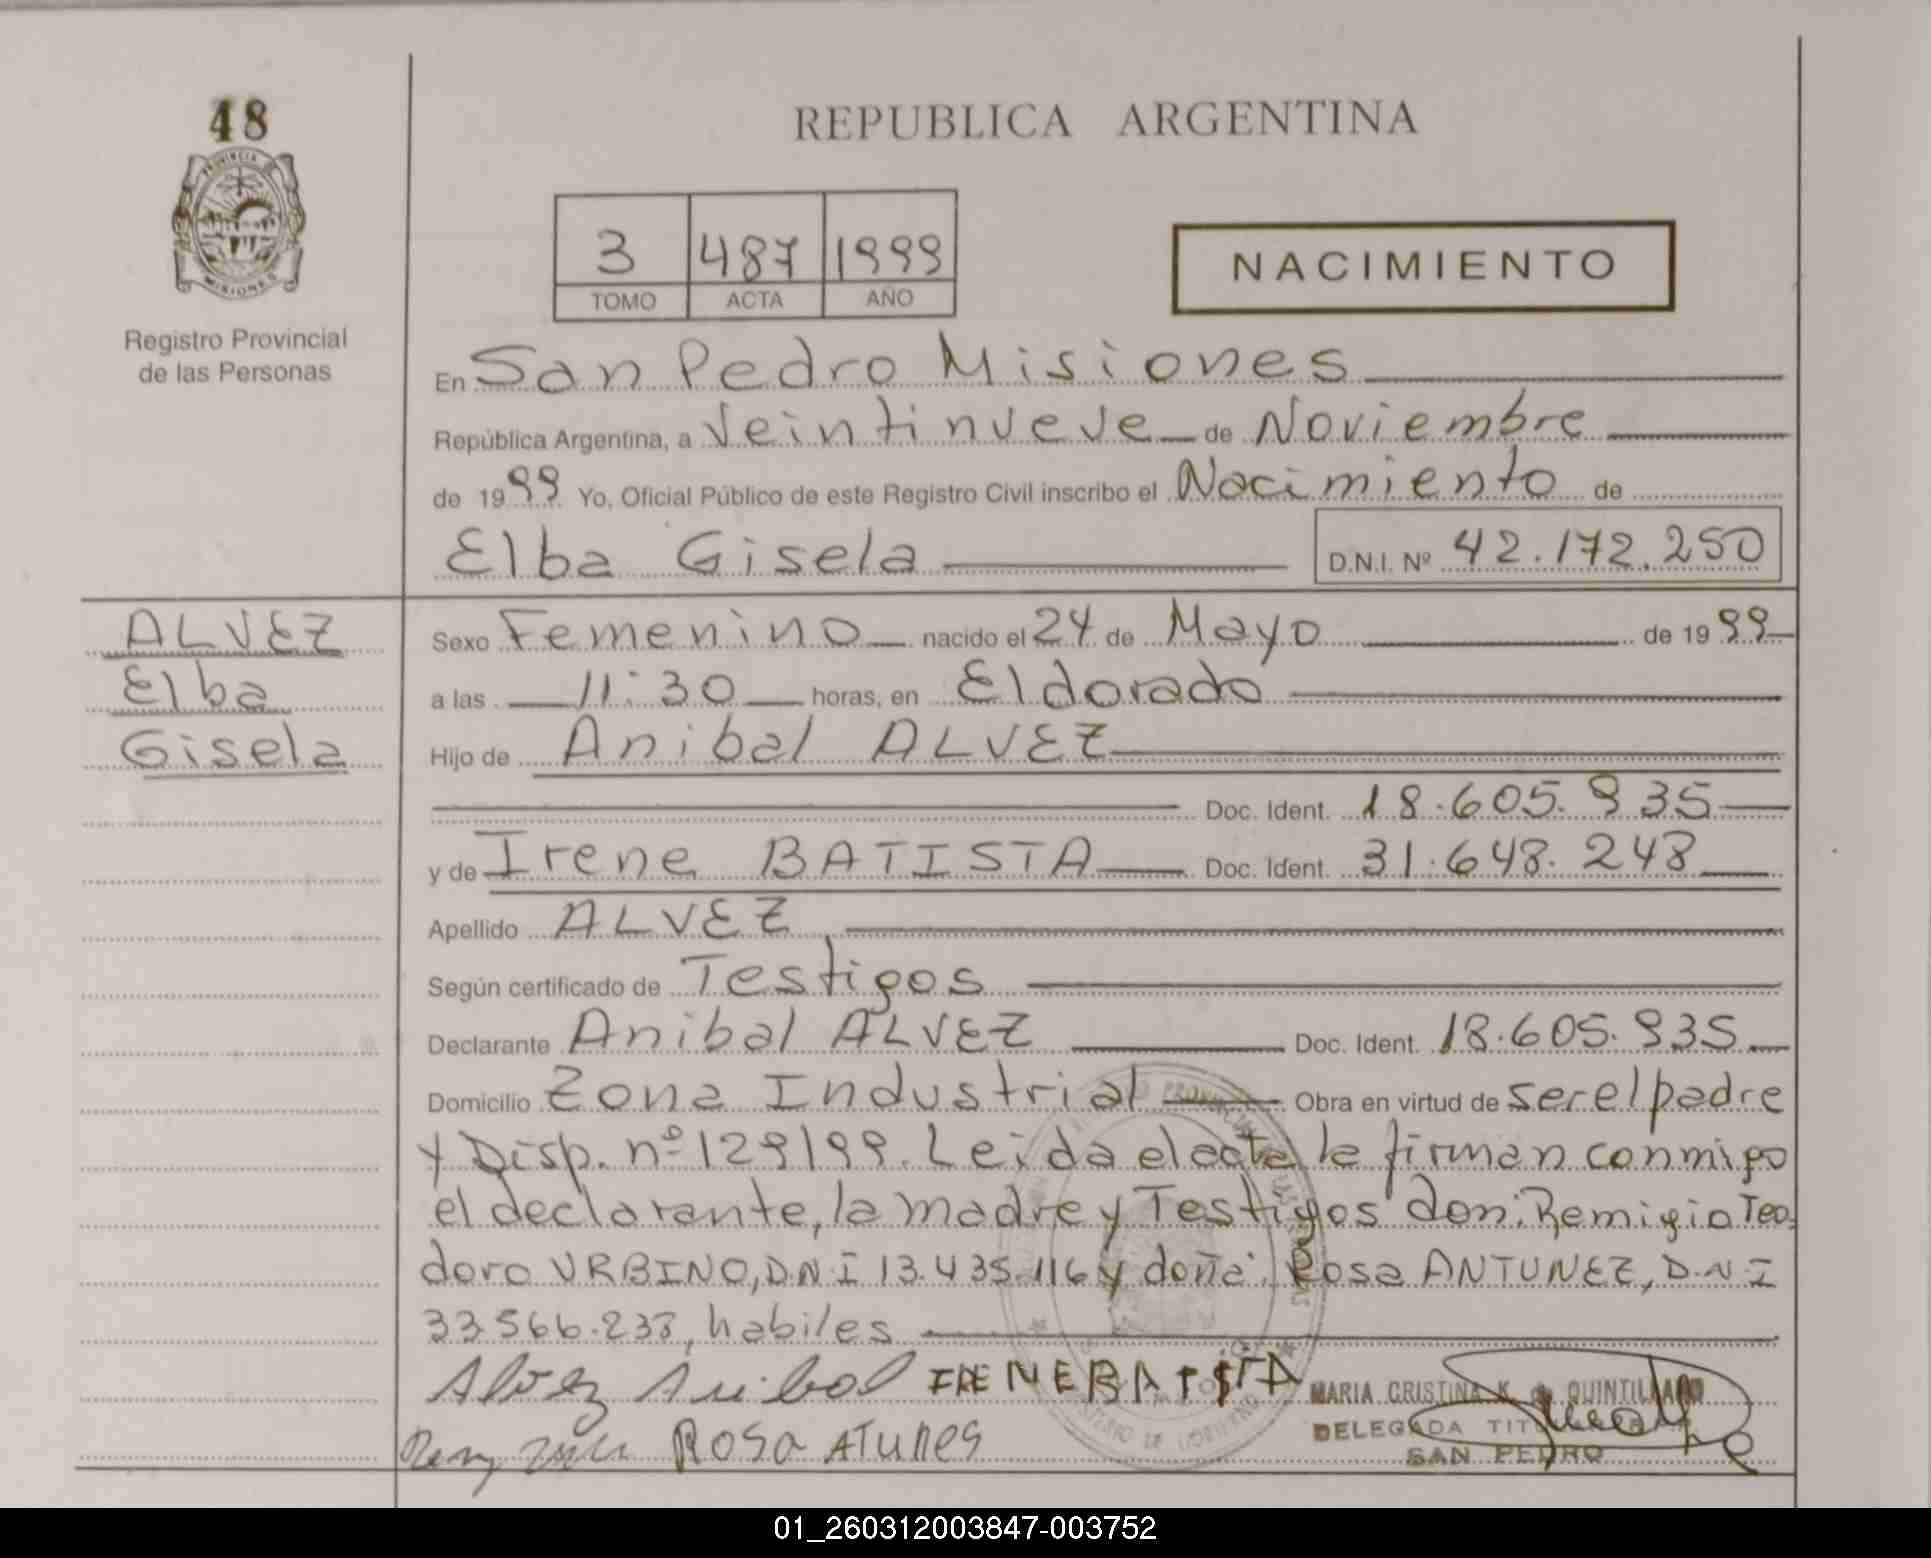 48
PROVINCIA DE
MISIONES
Registro Provincial
de las Personas
REPUBLICA ARGENTINA
3 487 1999
TOMO ACTA AÑO
NACIMIENTO
En San Pedro Misiones
República Argentina, a Veintinueve de Noviembre
de 1999 Yo, Oficial Público de este Registro Civil inscribo el Nacimiento de
Elba Gisela D.N.I. Nº 42.172.250
ALVEZ
Elba
Gisela
Sexo Femenino nacido el 24 de Mayo de 1999
a las 11:30 horas, en Eldorado
Hijo de Anibal ALVEZ
Doc. Ident. 18.605.935
y de Irene BATISTA Doc. Ident. 31.648.248
Apellido ALVEZ
Según certificado de Testigos
Declarante Anibal ALVEZ Doc. Ident. 18.605.935
Domicilio Zona Industrial Obra en virtud de ser el padre
y Disp. nº 129199. Leida el acta la firman conmigo
el declarante, la madre y Testigos don: Remigio Teo-
doro URBINO, D.N.I 13.435.116 y doña: Rosa ANTUNEZ, D.N.I
33.566.238, habiles
Alvez Anibal IRENE BATISTA
Rosa ATUNES
MARIA CRISTINA K. de QUINTILLANO
DELEGADA TITULAR
SAN PEDRO
01_260312003847-003752